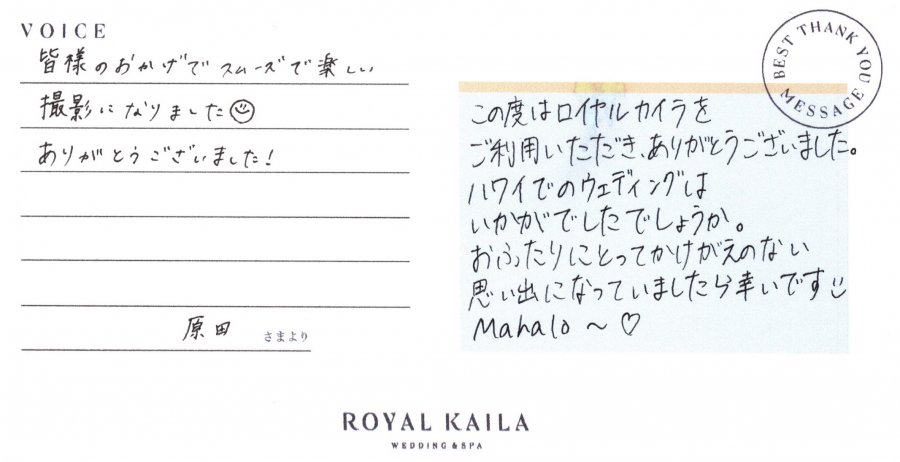 VOICE
皆様のおかげでスムーズで楽しい
撮影になりました
ありがとうございました!
原田 さまより
BEST THANK YOU MESSAGE
この度はロイヤルカイラを
ご利用いただき、ありがとうございました。
ハワイでのウェディングは
いかがでしたでしょうか。
おふたりにとってかけがえのない
思い出になっていましたら幸いです
Mahalo ~ ♡
ROYAL KAILA
WEDDING & SPA